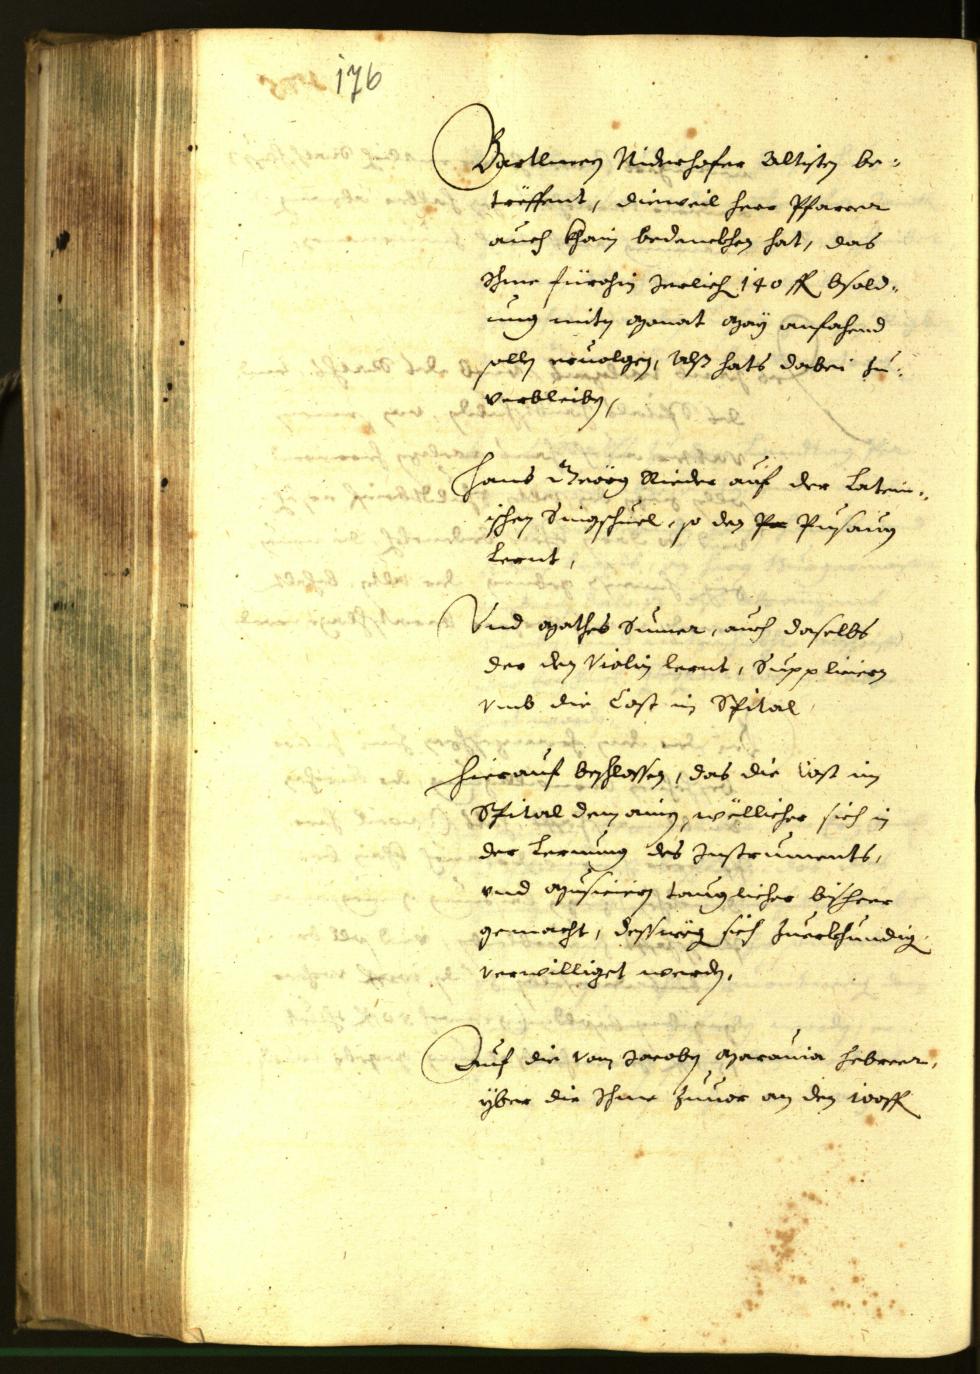 176
Bartlmeen Niderhofer Altisten be-
treffent, dieweil herr Pfarrer
auch khain bedenckhen hat, das
Ihme fürohin Jerlich 140 fl besold-
ung mitn monat may anfahend
solln ervolgen, Alß hats dabei zu-
verbleiben,
Hans Geörg Rieder auf der Latein-
ischen Singschuel, so den Pusaun
Lernt,
Und mathes Sumer, auch daselbs
der den Violin lernt, Supplicieren
umb die Cost im Spital
Hierauf beschlossen, das die Cost im
Spital dem ainen, wöllicher sich in
der Lernung des Instruments,
und musicieren tauglicher bisheer
gemacht, dessweg sich zuerkhundig
verwilliget werden.
Auf die vom Jacoben maravia hebreer,
yber die Ihme zuvor an den 100 fl